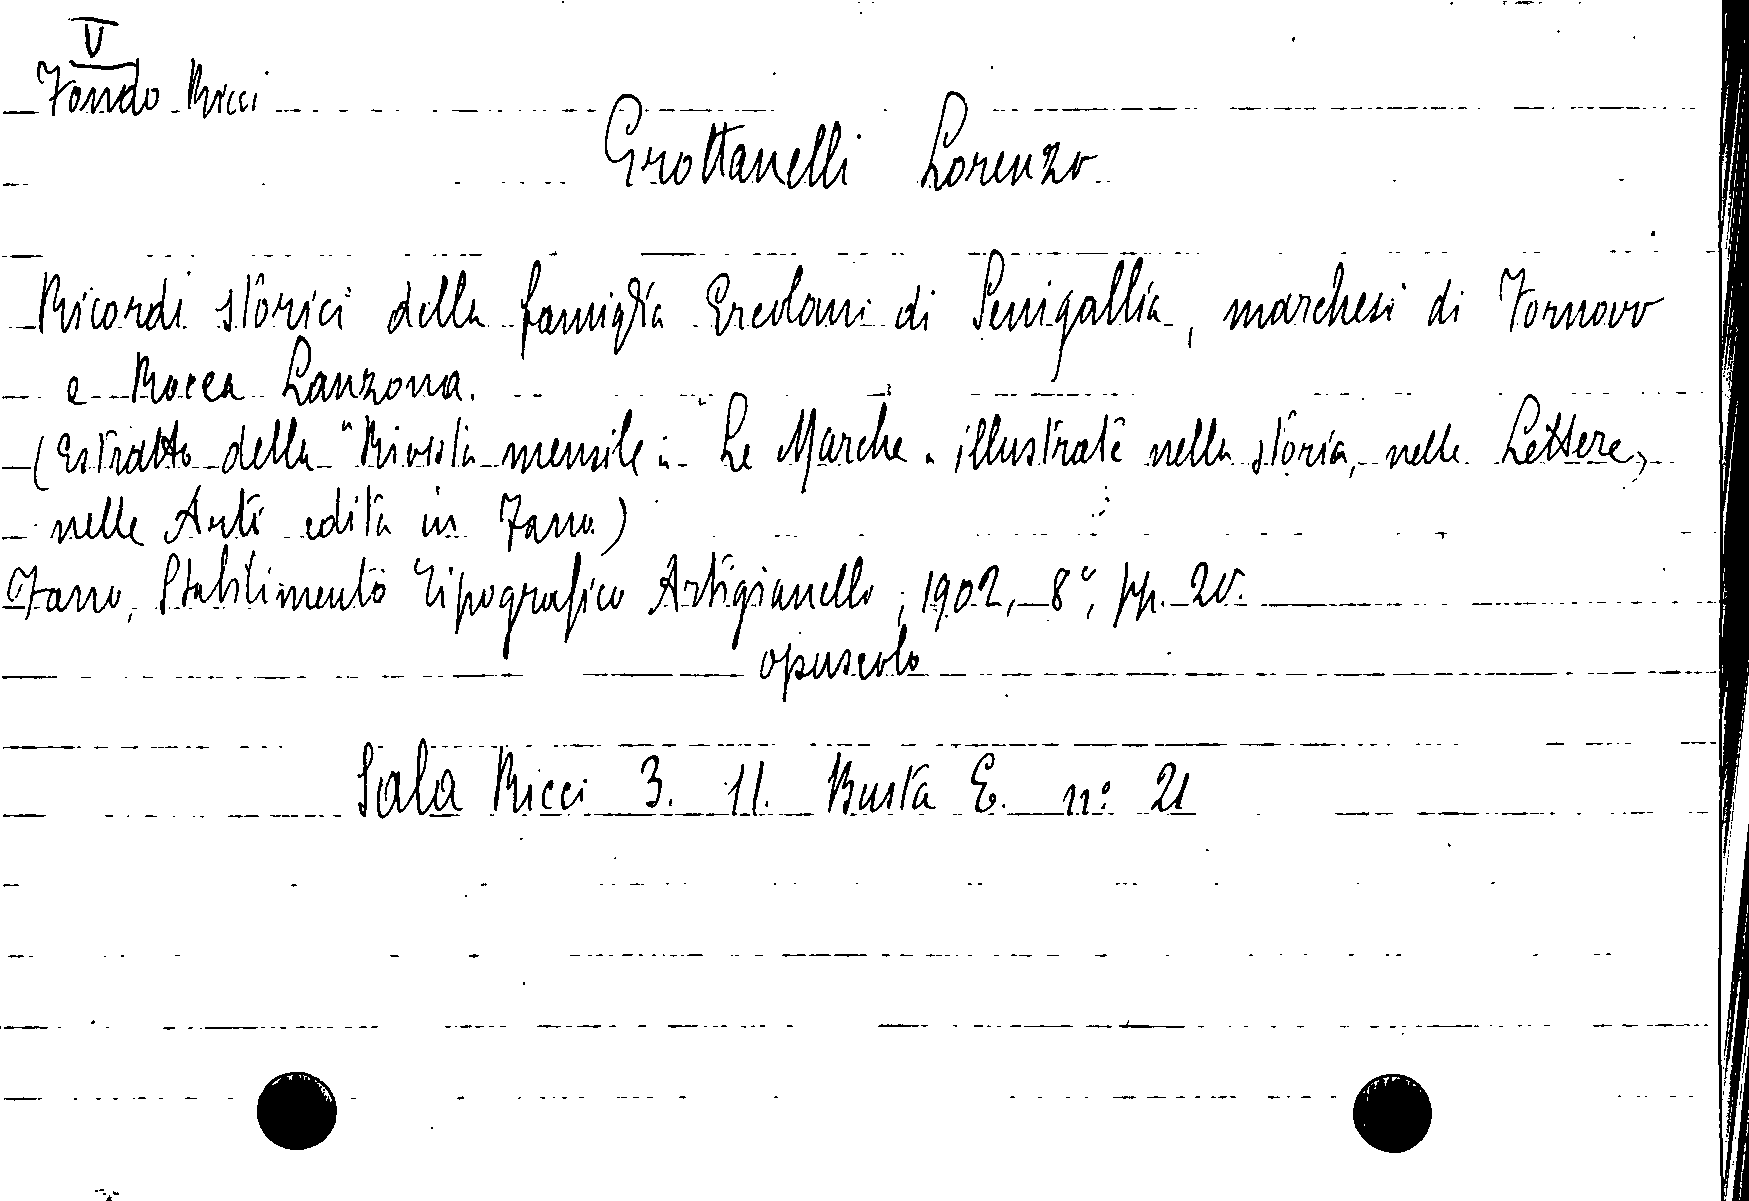 V
Fondo Ricci
Grottanelli Lorenzo
Ricordi storici della famiglia Ercolani di Senigallia, marchesi di Fornovo
e Rocca Lanzona.
(Estratto della "Rivista mensile: "Le Marche" illustrate nella storia, nelle Lettere,
nelle Arti edita in Fano)
Fano, Stabilimento Tipografico Artigianelli, 1902, 8°, pp. 20.
opuscolo
Sala Ricci 3. 11. Busta E. n° 21